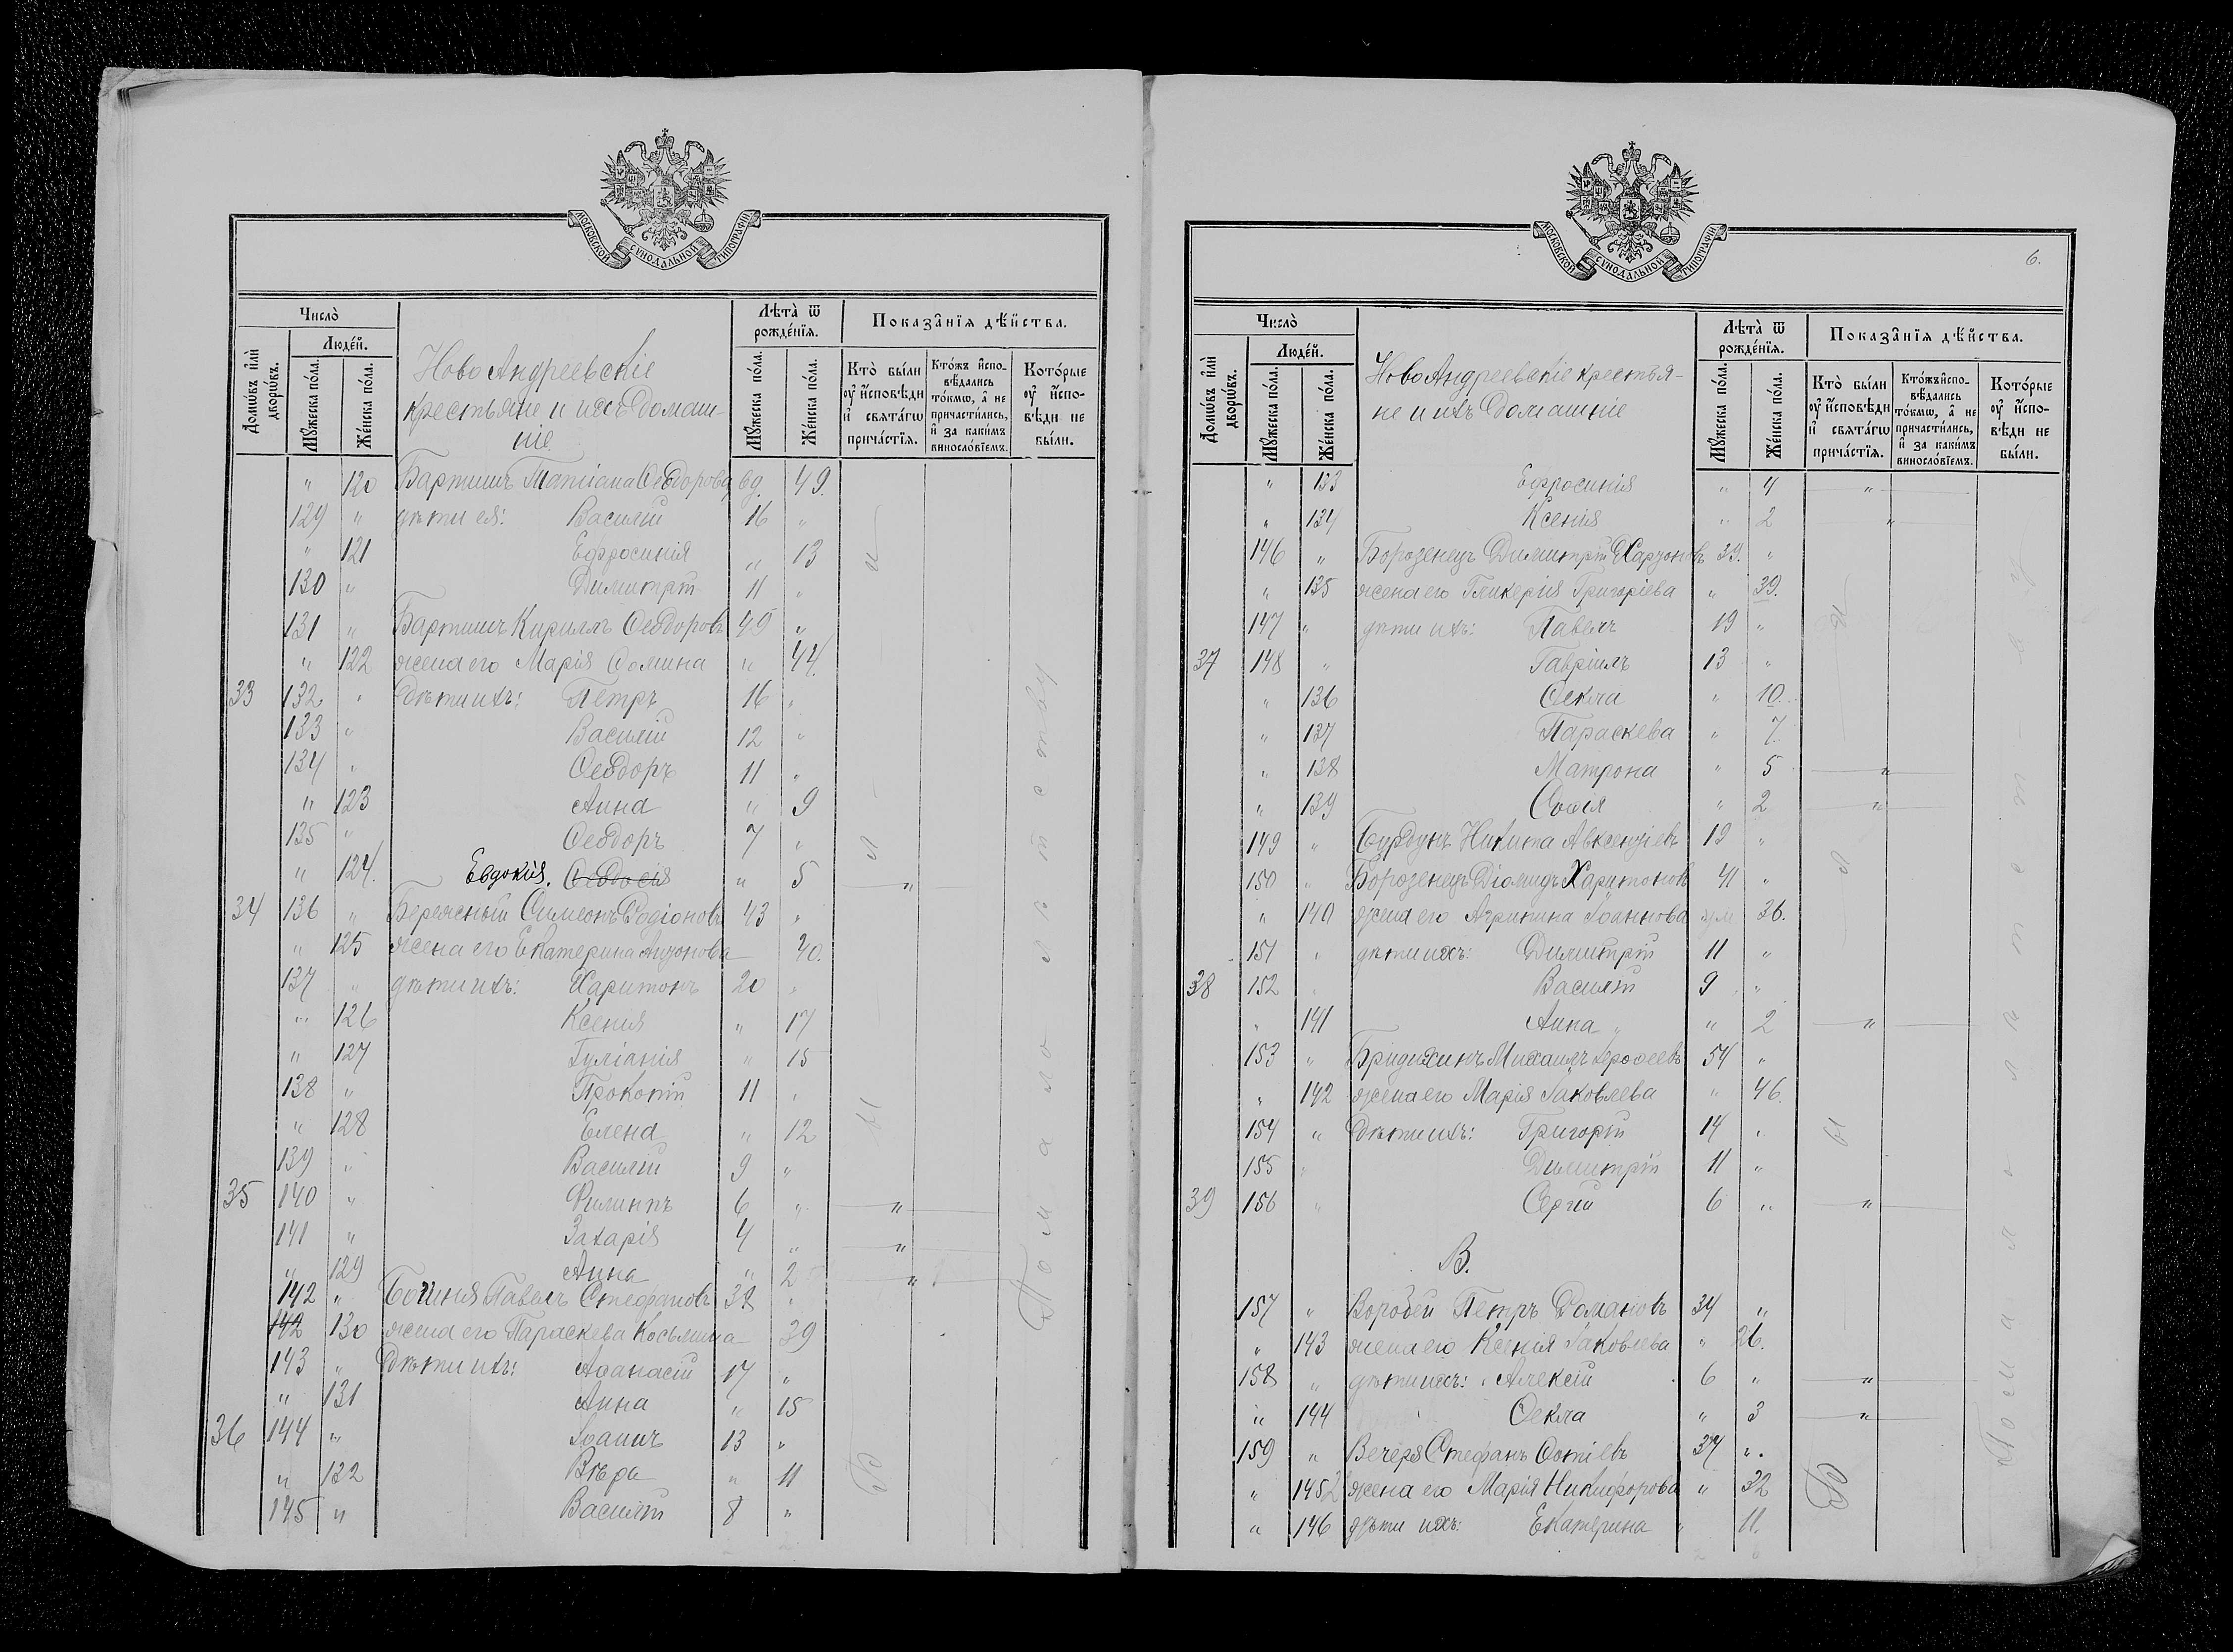 МОСКОВСКОЙ СУНОДАЛЬНОЙ ТИПОГРАФІИ
Число̀
Домѡвъ и҆лѝ дворѡ́въ.
Люде́й.
Мꙋ́жеска по́ла.
Же́нска по́ла.
Ново Андреевскіе
крестьяне и ихъ домаш-
ніе
Лѣта̀ ѿ рожде́нїѧ.
Мꙋ́жеска по́ла.
Же́нска по́ла.
Показа̑нїѧ дѣ́йства.
Кто̀ бы́ли ᲂу҆ и҆сповѣди и҆ свѧта́гѡ прича́стїѧ.
Кто́жъ и҆спо-вѣдались то́кмѡ, а҆ не причасти́лись, и҆ за каки́мъ винословїемъ.
Кото́рые ᲂу҆ и҆спо-вѣди не бы́ли.
" 120 Бартишъ Татіана Ѳеодорова вд. 49.
129 " дѣти ея: Василій 16 "
" 121 Ефросинія " 13
130 " Димитрій 11 "
131 " Бартишъ Кириллъ Ѳеодоровъ 45 "
" 122 жена его Марія Ѳомина " 44.
33 132 " дѣти ихъ: Петръ 16 "
133 " Василій 12 "
134 " Ѳеодоръ 11 "
" 123 Анна " 9
135 " Ѳеодоръ 7 "
" 124. Евдокія. Ѳеодосія " 5 "
34 136 " Бережный Симеонъ Родіоновъ 43 "
" 125 жена его Екатерина Антонова 40.
137 " дѣти ихъ: Харитонъ 20 "
" 126 Ксенія " 17
" 127 Іуліанія " 15
138 " Прокопій 11 "
" 128 Елена " 12
139 " Василій 9 "
35 140 " Филиппъ 6 " "
141 " Захарія 4 " "
" 129 Анна " 2 "
142 " Павелъ Стефановъ 38 "
142 130 жена его Параскева Косьмина 39
143 " дѣти ихъ: Аѳанасій 17 "
" 131 Анна " 15
36 144 " Іоаннъ 13 "
" 132 Вѣра " 11
145 " Василій 8 "
По малолѣтству
МОСКОВСКОЙ СУНОДАЛЬНОЙ ТИПОГРАФІИ
6.
Число̀
Домѡвъ и҆лѝ дворѡ́въ.
Люде́й.
Мꙋ́жеска по́ла.
Же́нска по́ла.
Ново Андреевскіе крестья-
не и ихъ домашніе
Лѣта̀ ѿ рожде́нїѧ.
Мꙋ́жеска по́ла.
Же́нска по́ла.
Показа̑нїѧ дѣ́йства.
Кто̀ бы́ли ᲂу҆ и҆сповѣди и҆ свѧта́гѡ прича́стїѧ.
Кто́жъ и҆спо-вѣдались то́кмѡ, а҆ не причасти́лись, и҆ за каки́мъ винословїемъ.
Кото́рые ᲂу҆ и҆спо-вѣди не бы́ли.
" 133 Ефросинія " 4 "
" 134 Ксенія " 2 "
146 " Борозенецъ Димитрій Харитоновъ 39. "
" 135 жена его Гликерія Григоріева " 39.
147 " дѣти ихъ: Павелъ 19 "
37 148 " Гавріилъ 13 "
" 136 Ѳекла " 10.
" 137 Параскева " 7.
" 138 Матрона " 5 "
" 139 Софія " 2 "
149 " Бурдунъ Никита Авксентіевъ 19 "
150 " Борозенецъ Діомидъ Харитоновъ 41 "
" 140 жена его Агрипина Іоаннова 36.
151 " дѣти ихъ: Димитрій 11 "
38 152 " Василій 9 "
" 141 Анна " 2 "
153 " Бридихинъ Михаилъ 54 "
" 142 жена его Марія Іаковлева " 46.
154 " дѣти ихъ: Григорій 14 "
155 " Димитрій 11 "
39 156 " Сергій 6 " "
В.
157 " Воробей Петръ Романовъ 34 "
" 143 жена его Ксенія Іаковлева " 26.
158 " дѣти ихъ: Алексій 6 " "
" 144 Ѳекла " 3 "
159 " Вечеря Стефанъ Фотіевъ 37 "
" 145 жена его Марія Никифорова " 32
" 146 дѣти ихъ: Екатерина " 11.
По малолѣтству